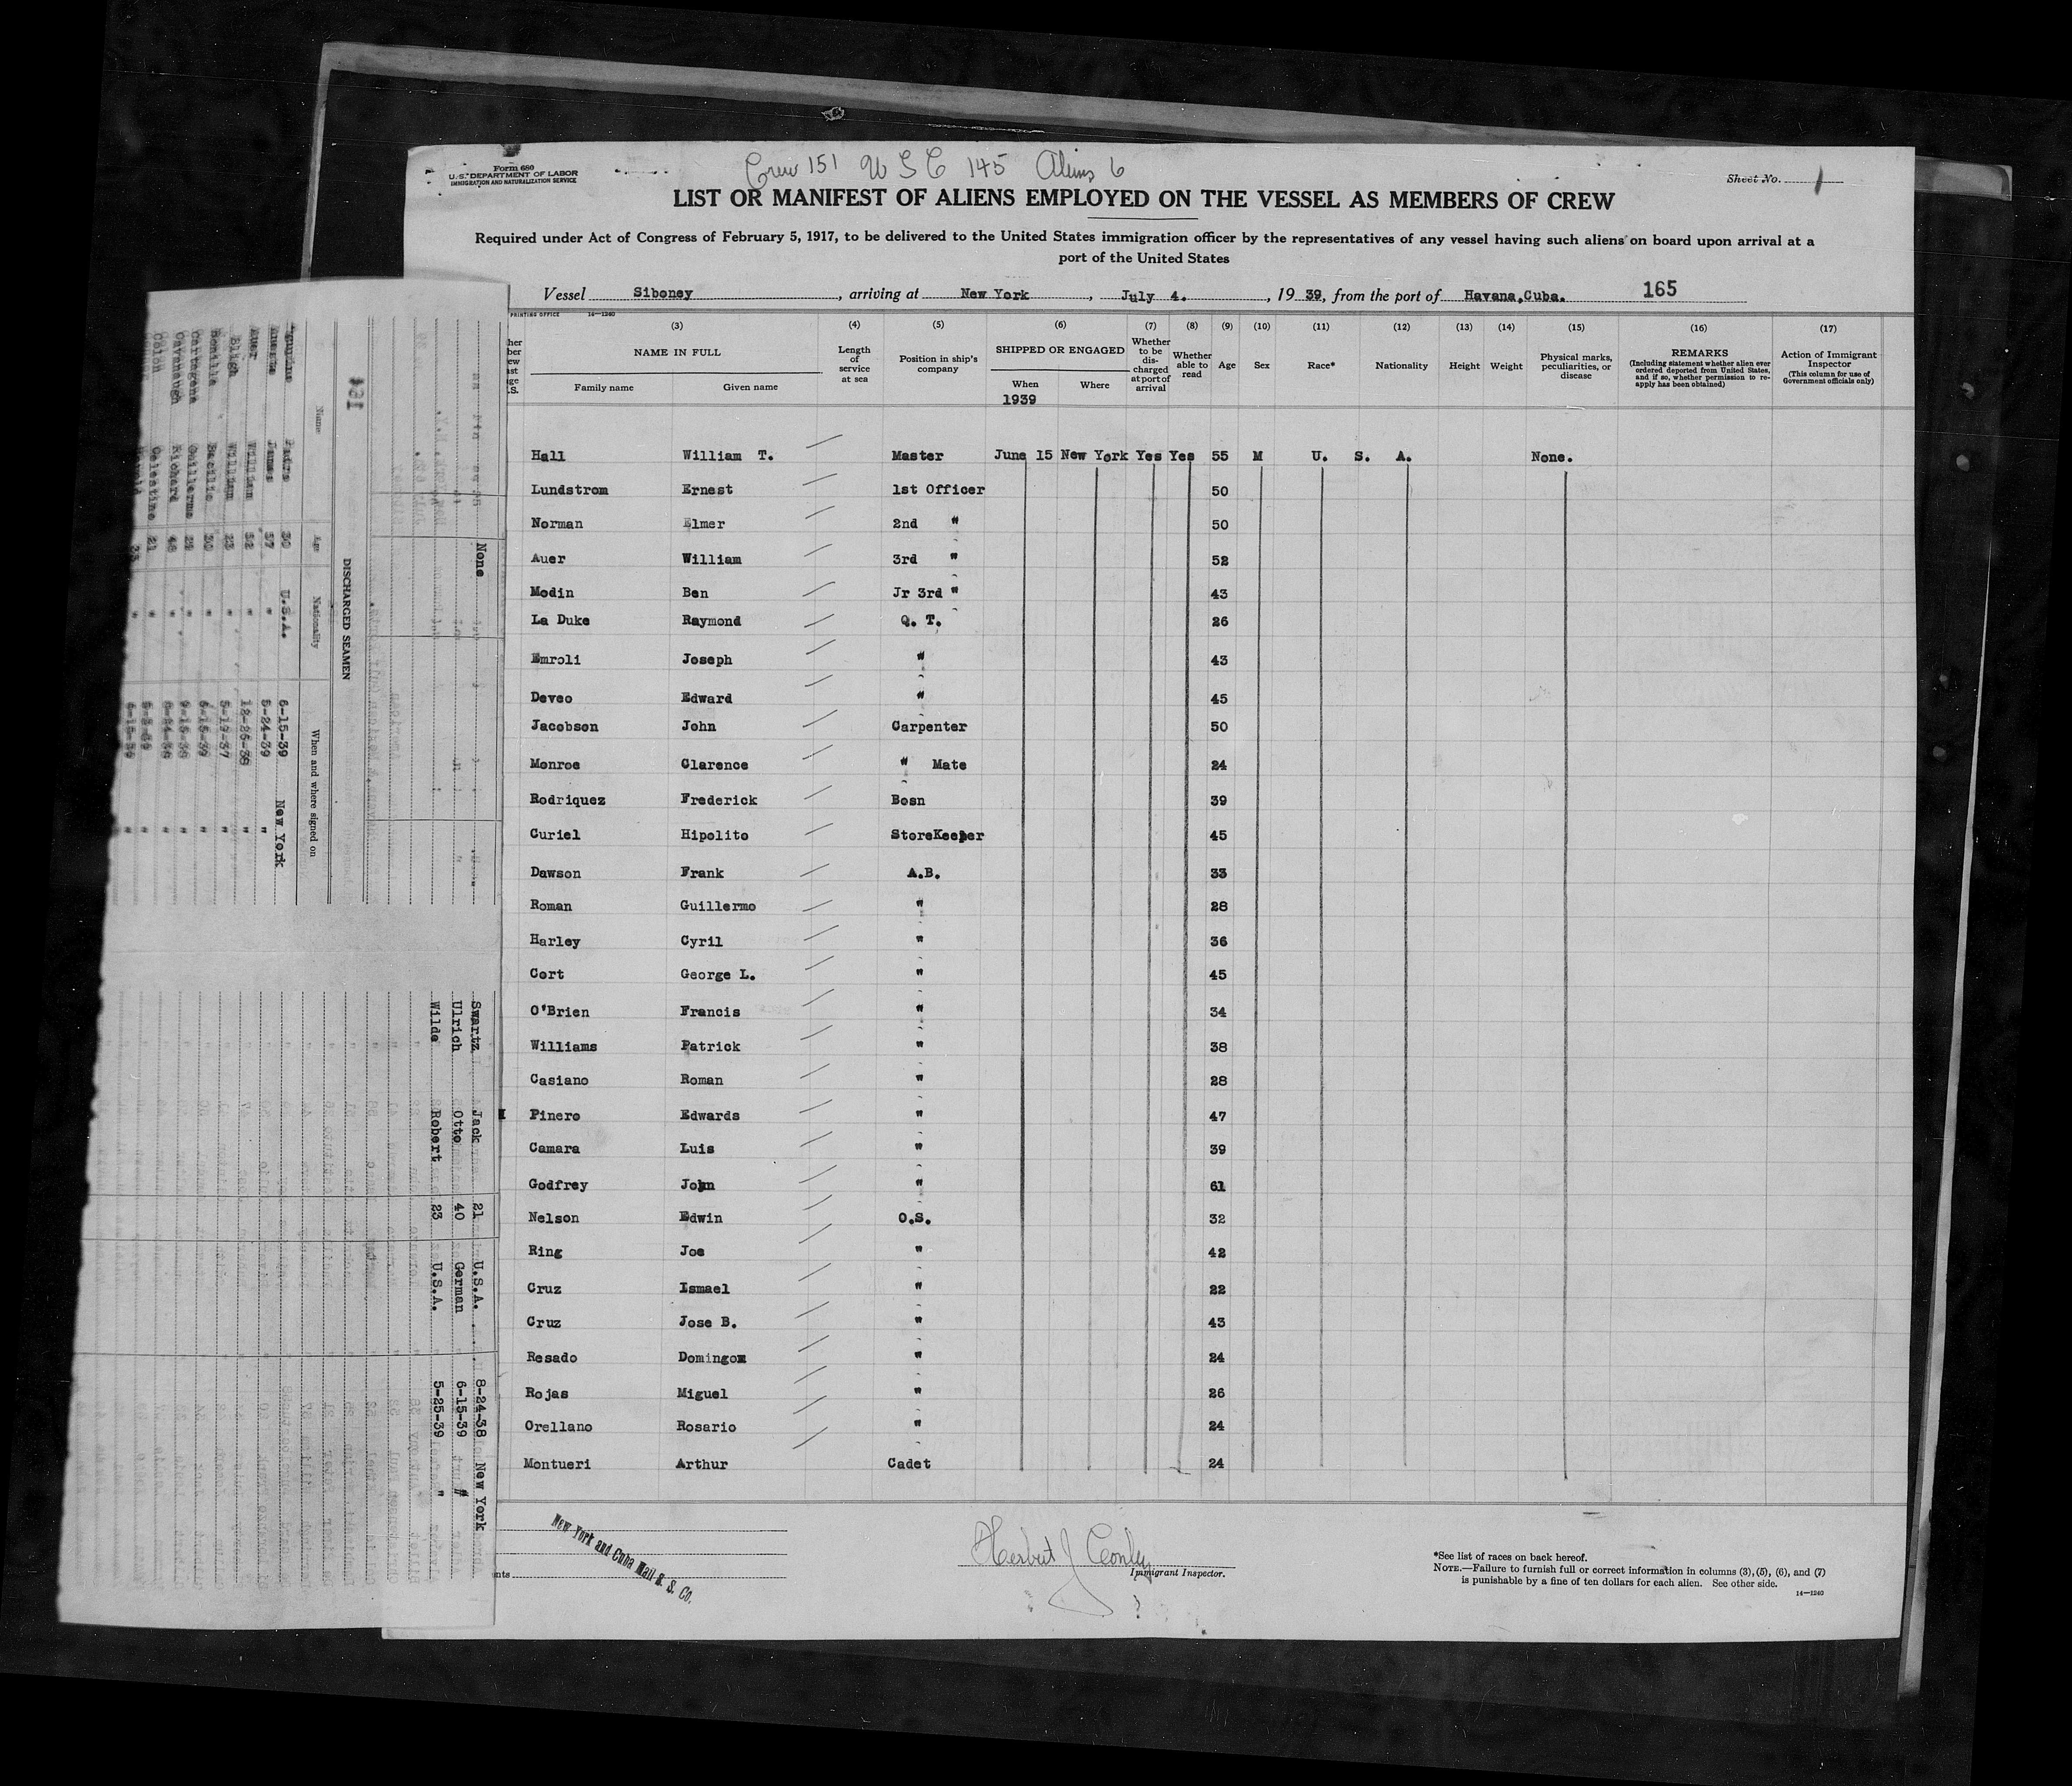 Form 680
U.S. DEPARTMENT OF LABOR
IMMIGRATION AND NATURALIZATION SERVICE
Crew 151 U S C 145 Aliens 6
Sheet No. 1
LIST OR MANIFEST OF ALIENS EMPLOYED ON THE VESSEL AS MEMBERS OF CREW
Required under Act of Congress of February 5, 1917, to be delivered to the United States immigration officer by the representatives of any vessel having such aliens on board upon arrival at a
port of the United States
Vessel Siboney, arriving at New York, July 4., 19 39, from the port of Havana, Cuba. 165
PRINTING OFFICE 14—1240
(3) (4) (5) (6) (7) (8) (9) (10) (11) (12) (13) (14) (15) (16) (17)
NAME IN FULL
Family name Given name
Length of service at sea
Position in ship's company
SHIPPED OR ENGAGED
When Where
1939
Whether to be discharged at port of arrival
Whether able to read
Age
Sex
Race*
Nationality
Height
Weight
Physical marks, peculiarities, or disease
REMARKS
(Including statement whether alien ever ordered deported from United States, and if so, whether permission to reapply has been obtained)
Action of Immigrant Inspector
(This column for use of Government officials only)
Hall William T. Master June 15 New York Yes Yes 55 M U. S. A. None.
Lundstrom Ernest 1st Officer 50
Norman Elmer 2nd " 50
Auer William 3rd " 52
Modin Ben Jr 3rd " 43
La Duke Raymond Q. T. 26
Emroli Joseph " 43
Deveo Edward " 45
Jacobson John Carpenter 50
Monroe Clarence " Mate 24
Rodriquez Frederick Bosn 39
Curiel Hipolito StoreKeeper 45
Dawson Frank A.B. 33
Roman Guillermo " 28
Harley Cyril " 36
Cort George L. " 45
O'Brien Francis " 34
Williams Patrick " 38
Casiano Roman " 28
Pinero Edwards " 47
Camara Luis " 39
Godfrey John " 61
Nelson Edwin O.S. 32
Ring Joe " 42
Cruz Ismael " 22
Cruz Jose B. " 43
Resado Domingo " 24
Rojas Miguel " 26
Orellano Rosario " 24
Montueri Arthur Cadet 24
New York and Cuba Mail S. S. Co.
Herbert J Conley
Immigrant Inspector.
*See list of races on back hereof.
NOTE.—Failure to furnish full or correct information in columns (3), (5), (6), and (7)
is punishable by a fine of ten dollars for each alien. See other side.
14—1240
DISCHARGED SEAMEN
Name Age Nationality When and where signed on
30 U.S.A. 6-15-39 New York
James 37 " 5-24-39 "
Auer William 52 " 12-26-38 "
Bligh William 23 " 5-19-37
Bonilla Basilio 30 " 6-15-39 "
Cartagena Guillermo "
Cavanaugh Richard 48 "
Colon Celestine 21 "
None
Swartz Jack 21 U.S.A. 8-24-38 New York
Ulrich Otto 40 German 6-15-39 "
Wilde Robert 23 U.S.A. 5-25-39 "